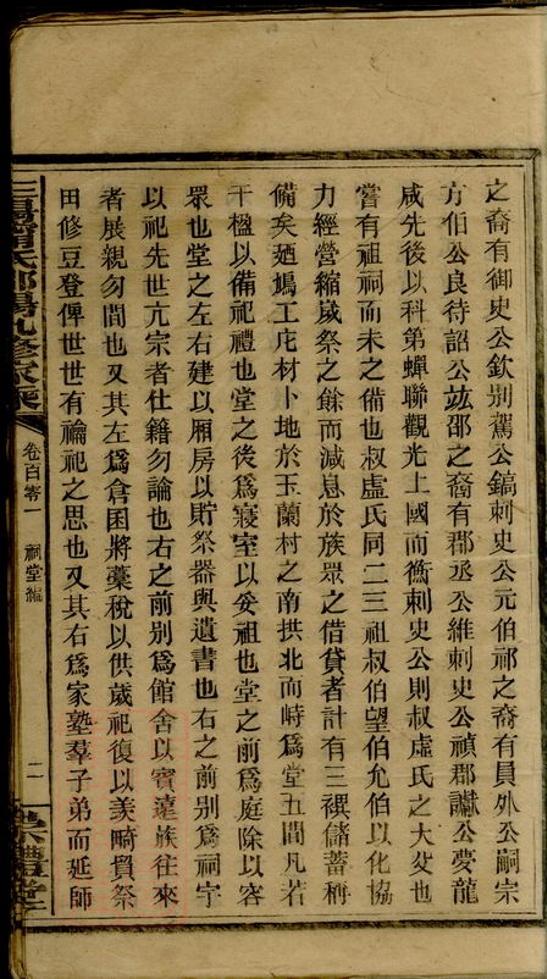 之裔有御史公欽别駕公鎬刺史公元伯祁之裔有員外公嗣宗
方伯公良待詔公竑邵之裔有郡丞公維刺史公禎郡讞公夢龍
咸先後以科第蟬聯觀光上國而衡刺史公則叔虛氏之大父也
嘗有祖祠而未之備也叔盧氏同二三祖叔伯望伯允伯以化協
力經營縮歲祭之餘而減息於族眾之借貸者計有三禩儲蓄稱
備矣廼鳩工庀材卜地於玉蘭村之南拱北而峙爲堂五間凡若
干楹以備祀禮也堂之後爲寢室以妥祖也堂之前爲庭除以容
眾也堂之左右建以厢房以貯祭器與遺書也右之前别爲祠宇
以祀先世亢宗者仕籍勿論也右之前别爲館舍以賓遠族往來
者展親勿間也又其左爲倉囷將藁稅以供歲祀復以羨畸貿祭
田修豆登俾世世有禴祀之思也又其右爲家塾羣子弟而延師
卷百零一 祠堂編 二